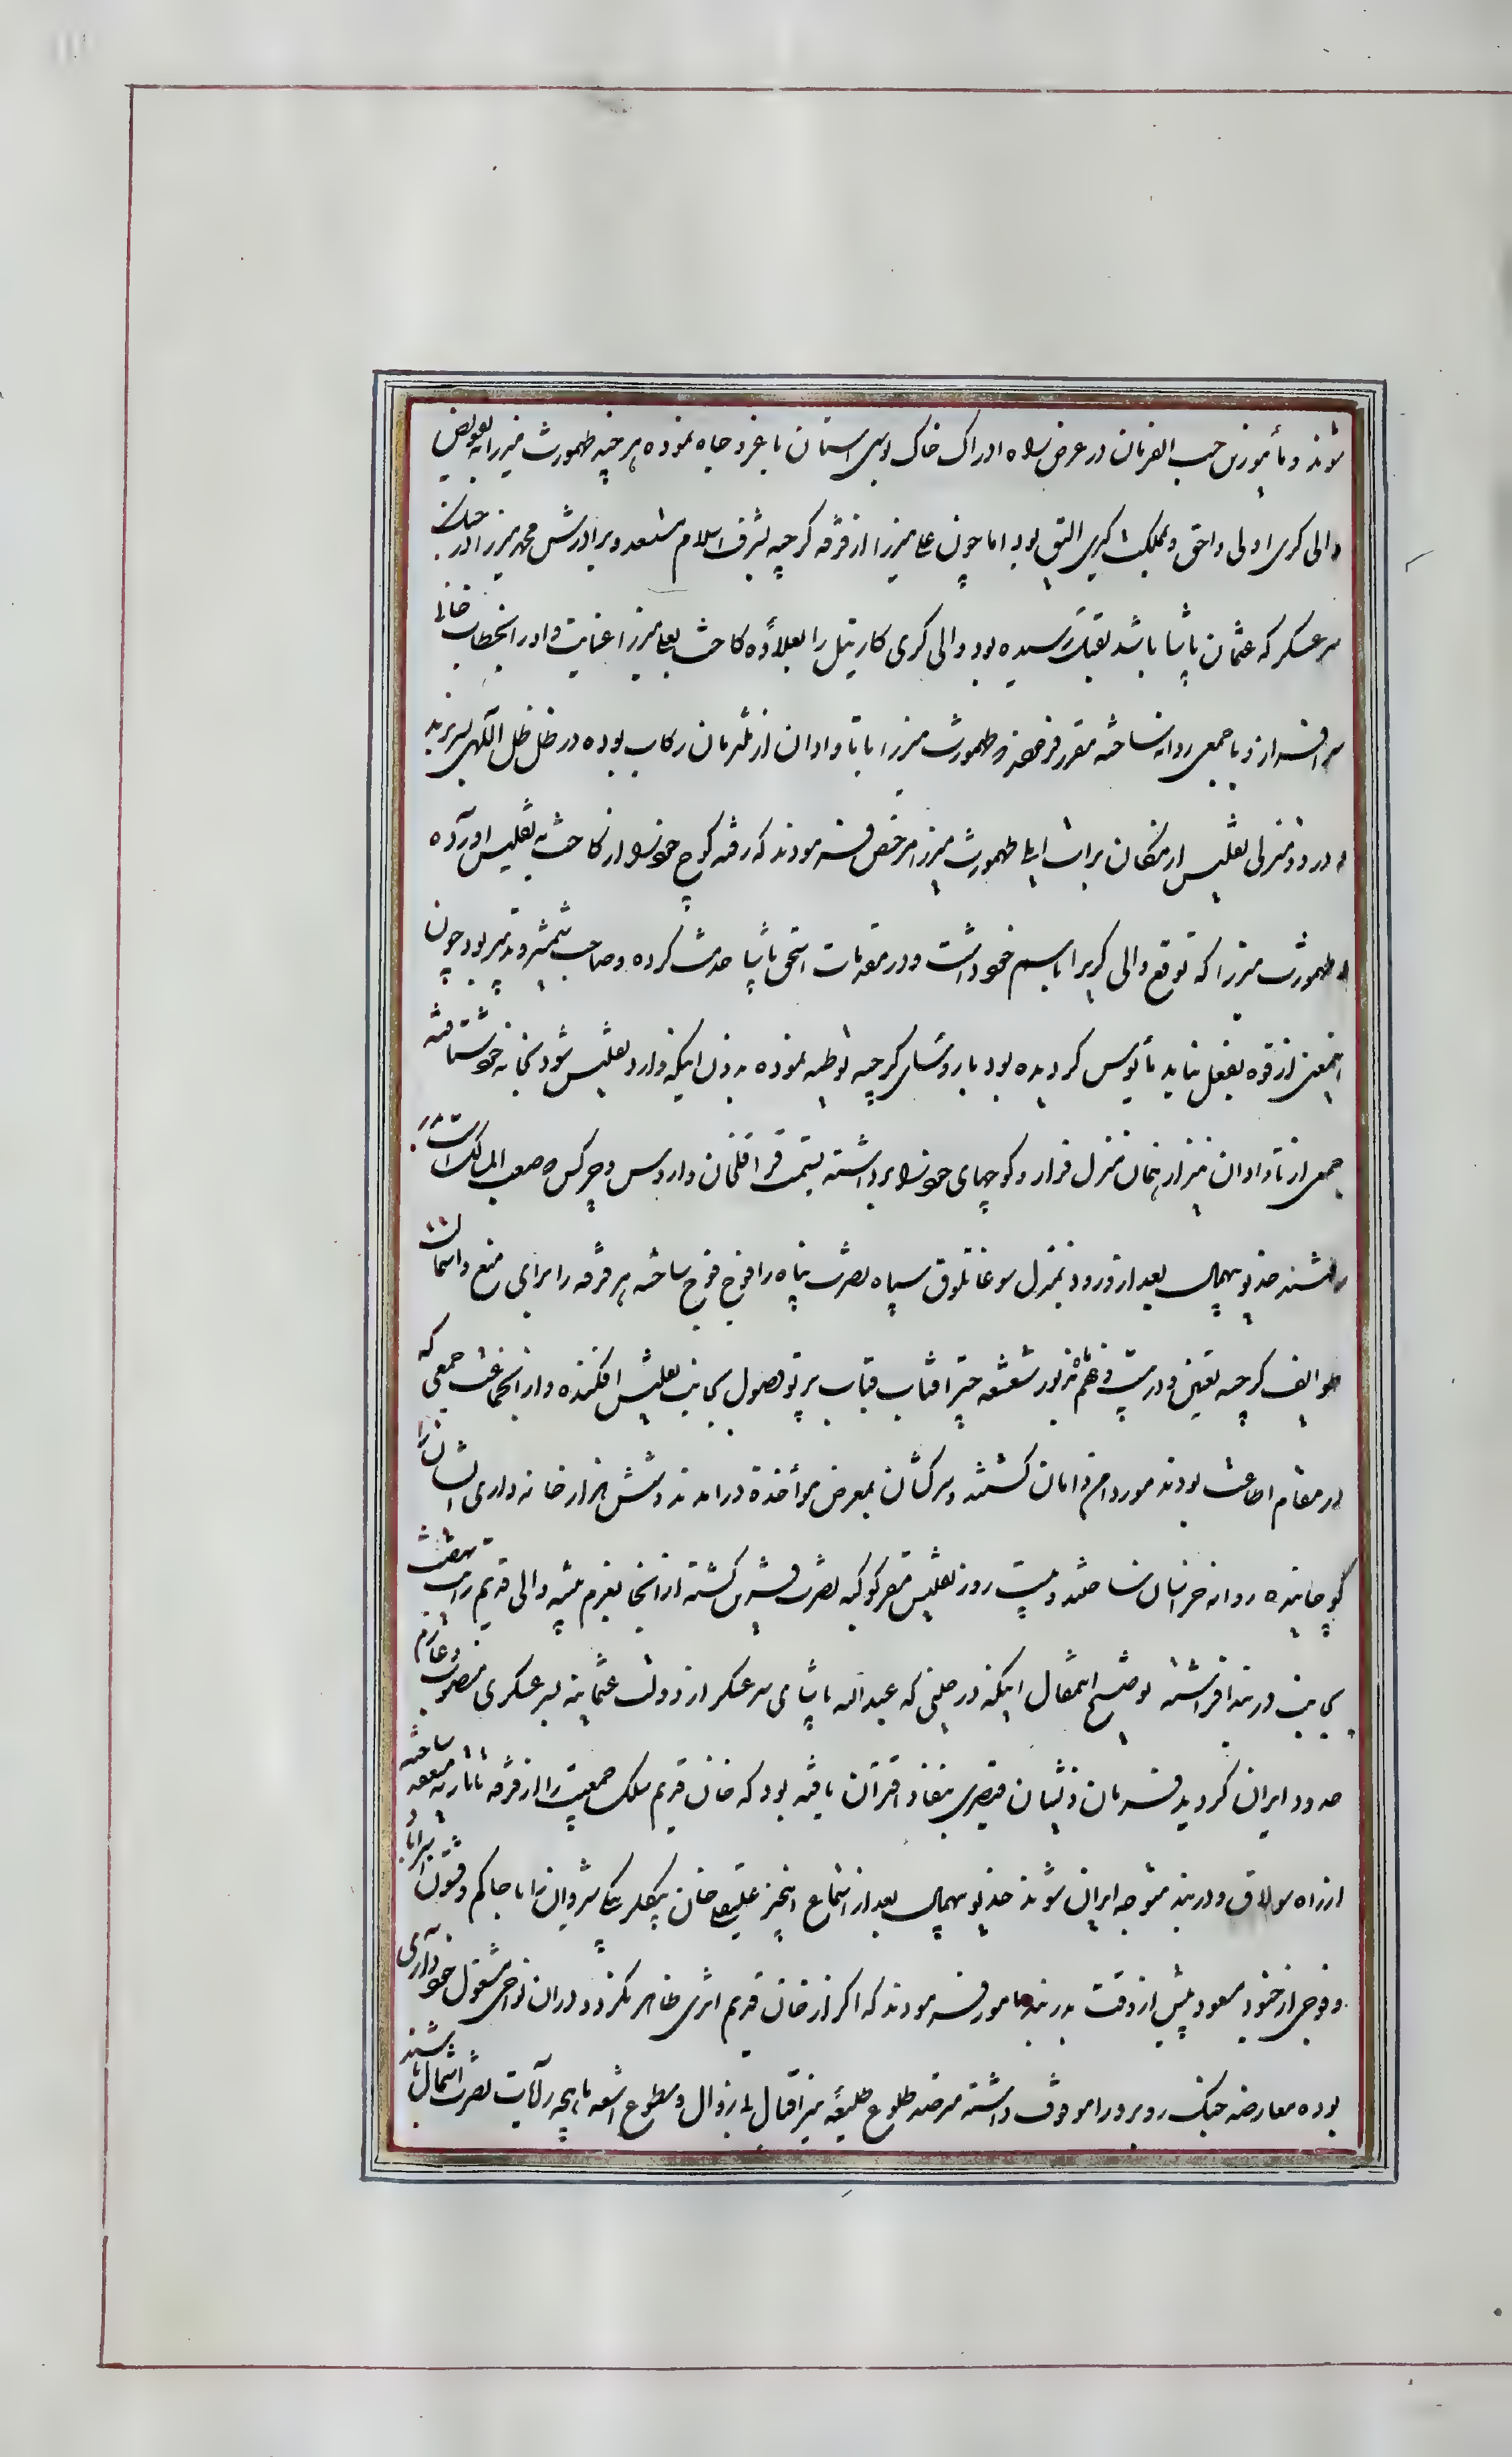 شوند و مأمورین حسب الفرمان در عرض راه ادراک خاک بوسی استان با عز و جاه نموده هر چند طهمورث میرزا بتفویض
والی کری اولی و احق و بملک کیری الیق بود اما چون علی میرزا از فرقه کرجیه بشرف اسلام مستسعد و برادرش محمد میرزا در جنک
سر عسکر که عثمان پاشا باشد بقتل رسیده بود والی کری کارتیل را بعلاوه کاخت بعلی میرزا عنایت و او را بخطاب خانی
سرافراز و با جمعی روانه ساخته مقرر فرمودند که طهمورث میرزا با تاوادان از ملتزمان رکاب بوده در ظل ظل اللهی بسر برند
و در دو منزلی تفلیس از مکان برات ایلی طهمورث میرزا مرخص فرمودند که رفته کوچ خود را از کاخت به تفلیس اورده
و طهمورث میرزا که توقع والی کریرا باسم خود داشت و در مقدمات اسحق پاشا خدمت کرده و صاحب شمشیر و تدبیر بود چون
اینمعنی از قوه بفعل نیامد مأیوس کردیده بود با روسای کرجیه توطیه نموده بدون اینکه وارد تفلیس شود بخانه خود شتافته
جمعی از تاوادان نیز از همان منزل فرار و کوچهای خود را برداشته بسمت قراقلخان و اروس و چرکس و صعب المسالک است بدر
رفتند خدیو بیهمال بعد از ورود بمنزل سوغانلوق سپاه نصرت پناه را فوج فوج ساخته هر فرقه را برای منع و استمالت
طوایف کرجیه تعیین و در بیست و هفتم مزبور شعشعه چتر افتاب قباب پرتو وصول بجانب تفلیس افکنده و از انجماعت جمعی که
در مقام اطاعت بودند مورد امن و امان کشتند و سرکشان بمعرض مؤاخذه درامدند و شش هزار خانه داری ایشانرا
کوچانیده روانه خراسان ساختند و بیست روز تفلیس مقر کوکبه نصرت قرین کشته از انجا بعزم تنبیه والی قدیم رایت نهضت
بجانب دربند افراشتند توضیح اینمقال اینکه در حینی که عبدالله پاشای سر عسکر از دولت عثمانیه بسر عسکری منصوب و عازم
حدود ایران کردید فرمان ذیشان قیصری بنفاذ اقتران یافته بود که خان قریم سلک جمعیت را از فرقه تاتاریه منعقد ساخته
از راه سولاق و دربند متوجه ایران شوند خدیو بیهمال بعد از استماع اینخبر علیقلی خان بیکلربیکی شیروان را با حاکم و قشون استراباد
و فوجی از جنود مسعود پیش از وقت بدربند مامور فرمودند که اکر از خان قریم اثری ظاهر نکردد در ان نواحی مشغول خودداری
بوده معارضه جنک روبرو را موقوف داشته مترصد طلوع طلیعه نیر اقبال بی زوال و سطوع اشعه ماهچه رایات نصرت اشتمال باشند